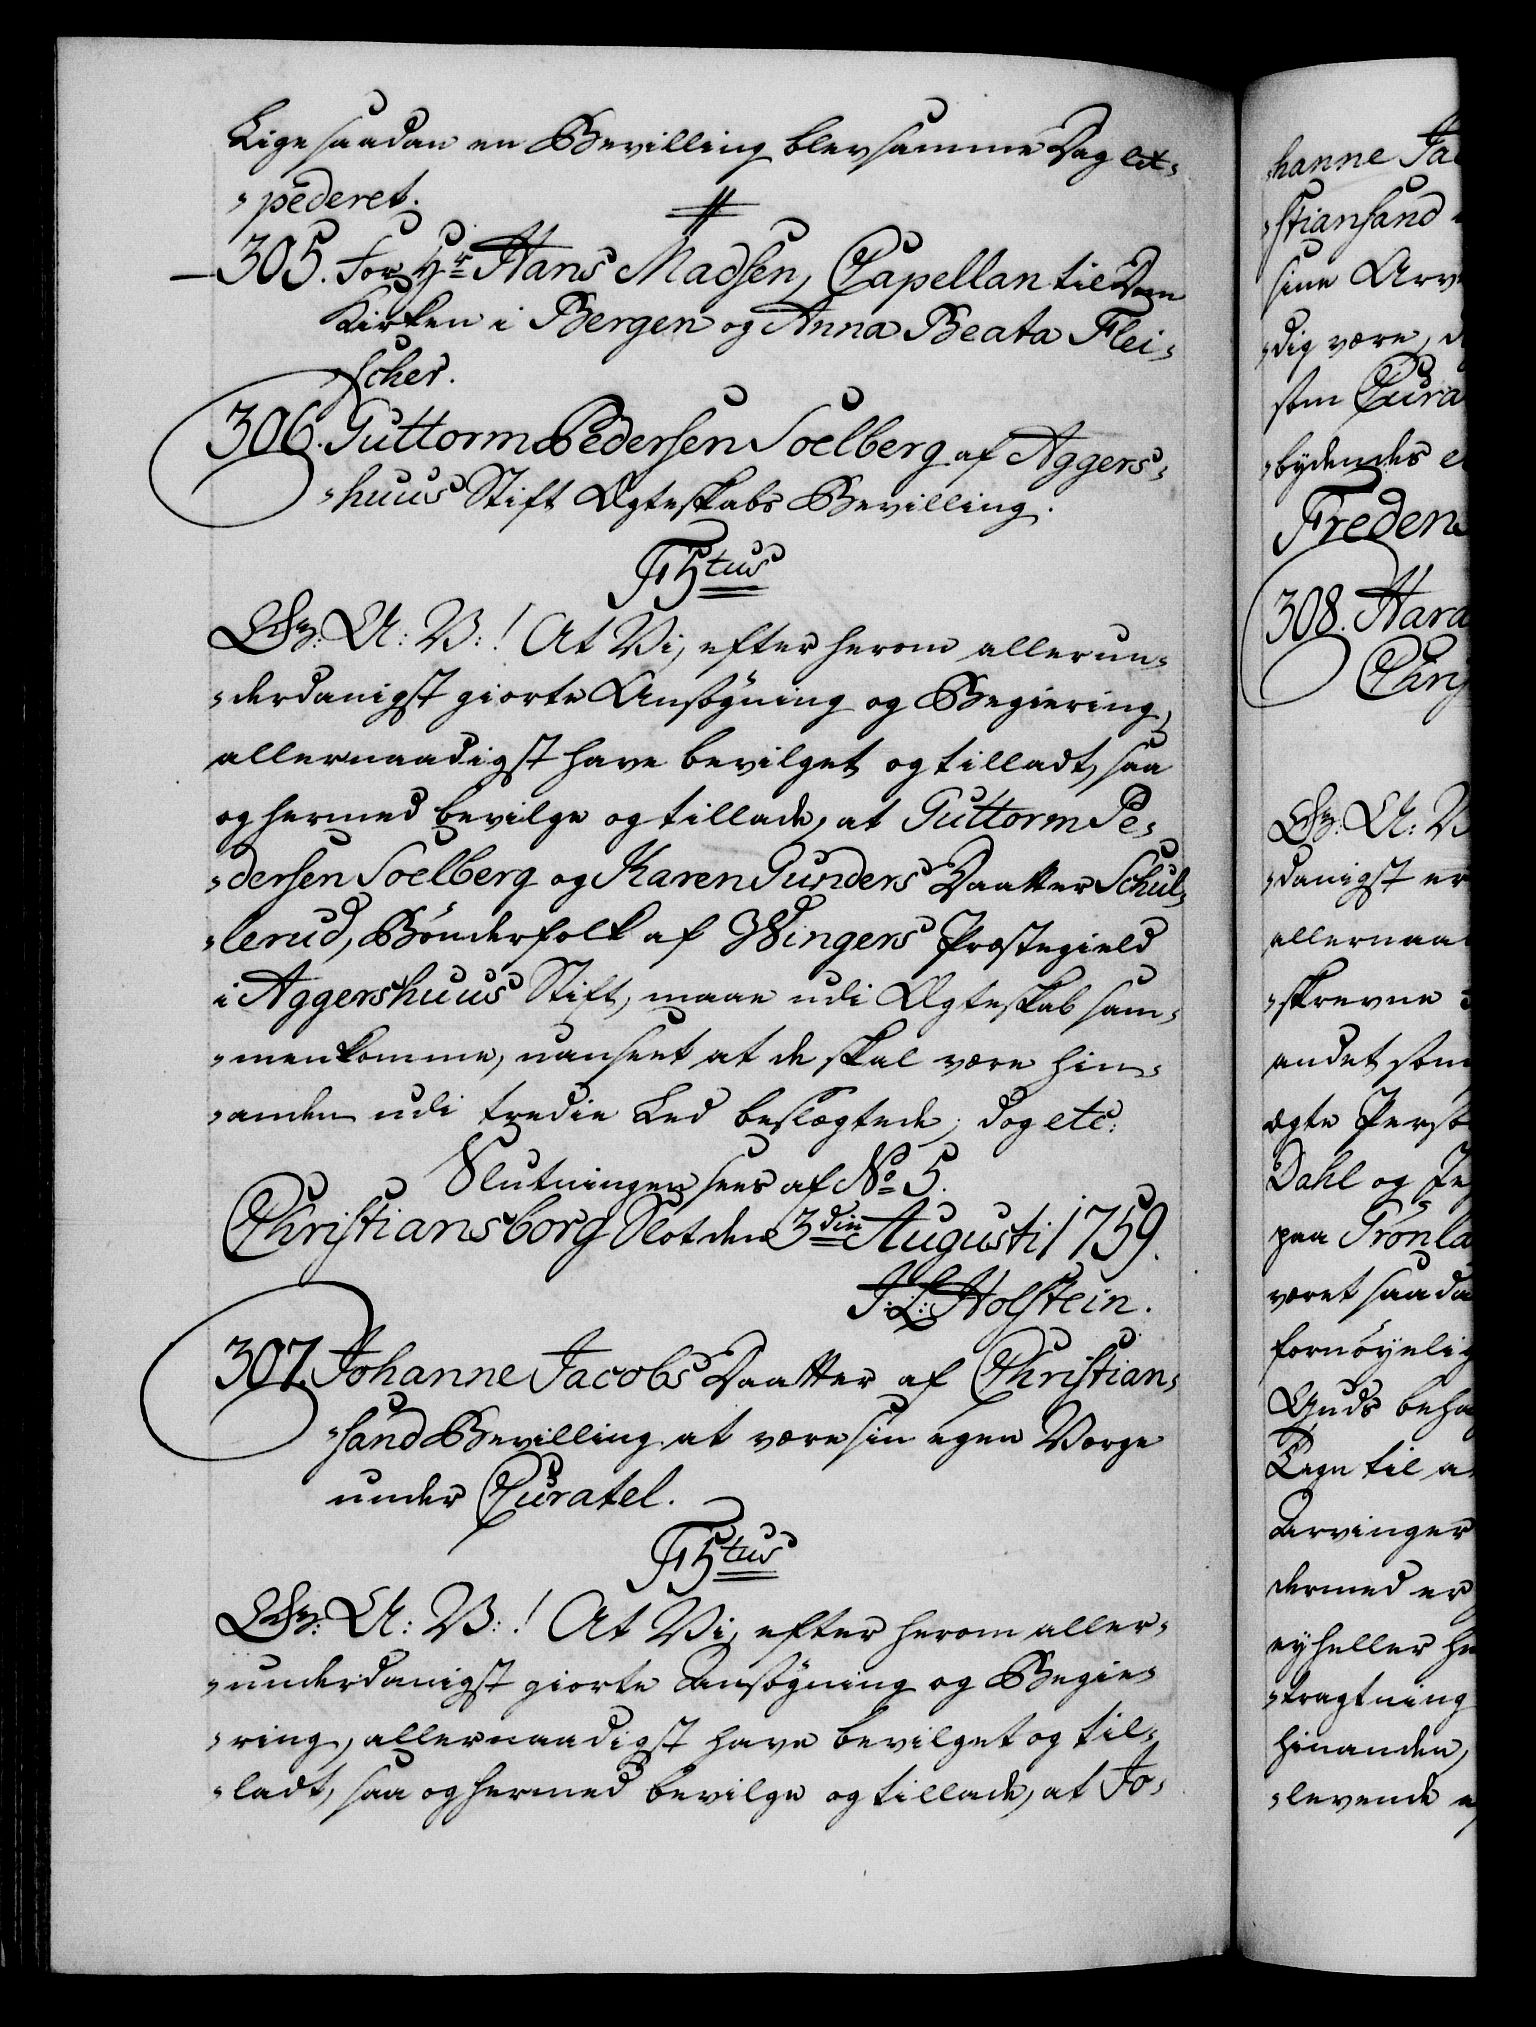 Lige saadan en Bevilling blev samme Dag ex-
-pederet.
305. For Hr Hans Madsen, Capellan til Dom
Kirken i Bergen og Anna Beata Flei-
scher.
306. Guttorm Pedersen Soelberg af Aggers-
-huus Stift Ægteskabs Bevilling.
F5tus
Gr: A: V:! At Vi, efter herom allerun-
-derdanigst giorte Ansøgning og Begiering,
allernaadigst have bevilget og tilladt, saa
og hermed bevilge og tillade, at Guttorm Pe-
-dersen Soelberg og Karen Gunders Daatter Schul-
-lerud, Bønderfolk af Wingers Præstegield
i Aggershuus Stift, maae udi Ægteskab sam-
-menkomme, uanseet at de skal være hin-
-anden udi tredie Led beslægtede; dog etc:
Slutningen sees af No 5.
Christiansborg Slot den 3die Augusti 1759.
J: L: Holstein.
307. Johanne Jacobs Daatter af Christian-
-sand Bevilling at være sin egen Værge
under Curatel.
F5tus
Gr: A: V:! At Vi, efter herom aller-
-underdanigst giorte Ansøgning og Begie-
-ring, allernaadigst have bevilget og til-
-ladt, saa og hermed bevilge og tillade, at Jo-
-hanne Jac
-stiansand
sine Arv
-dig være, d
som Cura
-bydendes e
Fredens
308. Hara
Chris
Gr: A: V
-danigst er
allernaa
-skrevne
andet som
ægte Perso
Dahl og Je
paa Grønla
været saada
fornøyelig
Guds beha
Legn til a
Arvinger
dermed er
ey heller he
-tragtning
hinanden,
-levende e